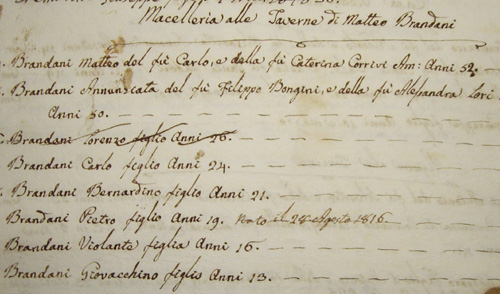 Macelleria alle Taverne di Matteo Brandani
Brandani Matteo del fù Carlo, e della fù Caterina Corrivi Am: Anni 52.
Brandani Annunciata del fù Filippo Bongini, e della fù Alessandra Lori
Anni 50.
Brandani Lorenzo figlio Anni 26.
Brandani Carlo figlio Anni 24.
Brandani Bernardino figlio Anni 21.
Brandani Pietro figlio Anni 19. Nato il 28 Agosto 1816
Brandani Violante figlia Anni 16.
Brandani Giovacchino figlio Anni 13.